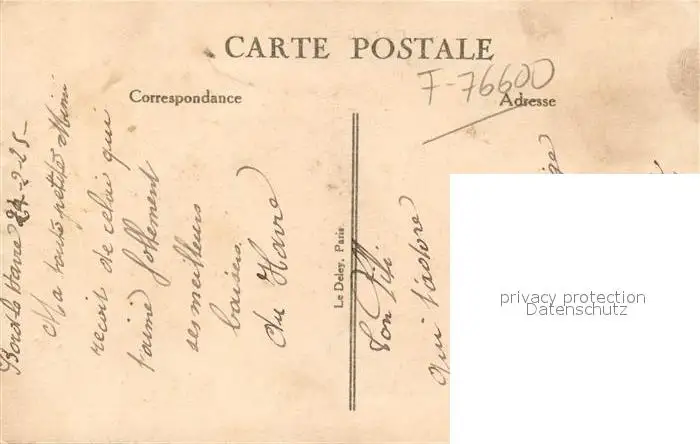 CARTE POSTALE
F-76600
Correspondance
Adresse
Bord le Havre 24-2-25-
Ma toute petite Mimi
reçoit de celui qui
t'aime follement
ses meilleurs
baisers
du Havre
Le Deley, Paris
Ton Fifi
qui t'adore
privacy protection
Datenschutz